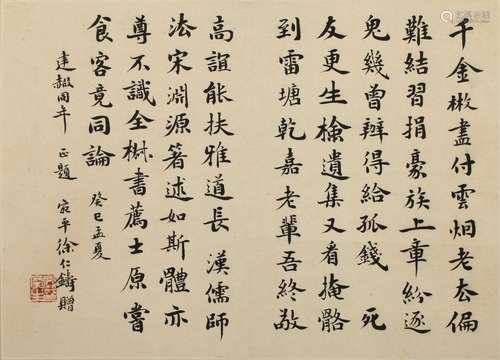 千金散盡付雲烟老厺偏
難結習捐豪族上章紛逐
鬼幾曾辦得給孤錢 死
友更生檢遺集又看掩骼
到雷塘乾嘉老輩吾終敬
高誼能扶雅道長 漢儒師
法宋淵源箸述如斯體亦
尊不識全椒書薦士原嘗
食客竟同論 癸巳孟夏
建赮同年 正題 宛平徐仁鑄贈